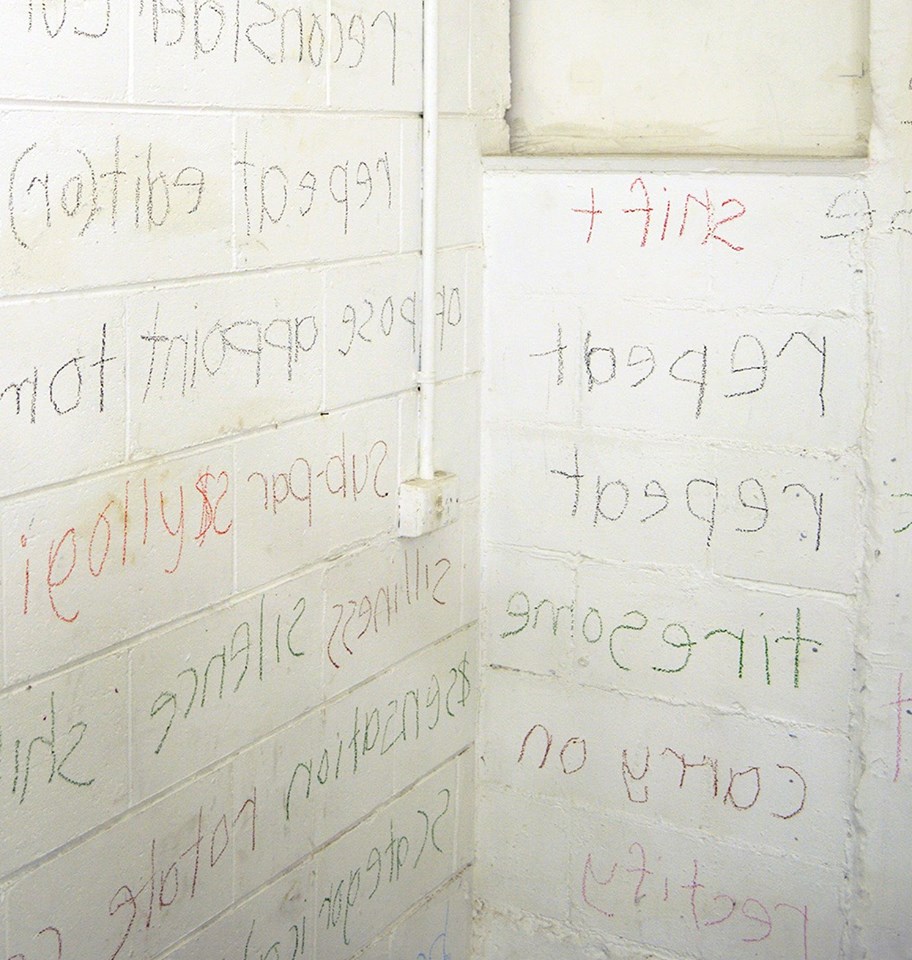 reconsider
repeat edit(or)
op pose appoint
sub-par $yllogi
silliness silence
$sensation rotate
shift
repeat
repeat
tiresome
carry on
rectify